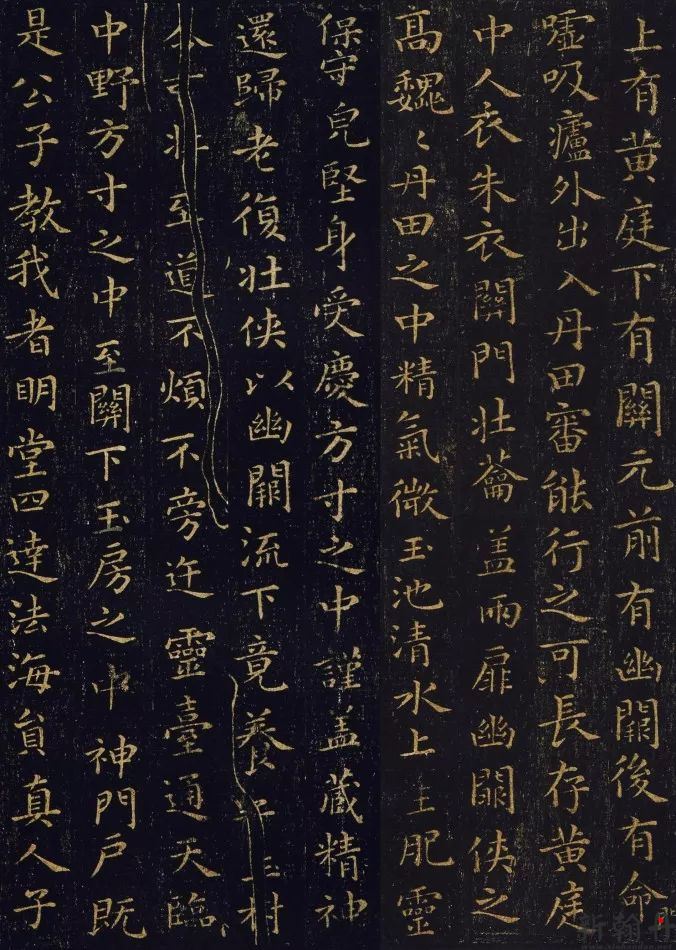 上有黄庭下有關元前有幽闕後有命
噓吸廬外出入丹田審能行之可長存黄庭
中人衣朱衣關門壯蘥盖兩扉幽闕俠之
高巍〻丹田之中精氣微玉池清水上生肥靈
保守皃堅身受慶方寸之中謹盖藏精神
還歸老復壯俠以幽闕流下竟養子玉樹
令可壯至道不煩不旁迕靈臺通天臨
中野方寸之中至關下玉房之中神門戶既
是公子教我者明堂四達法海員真人子